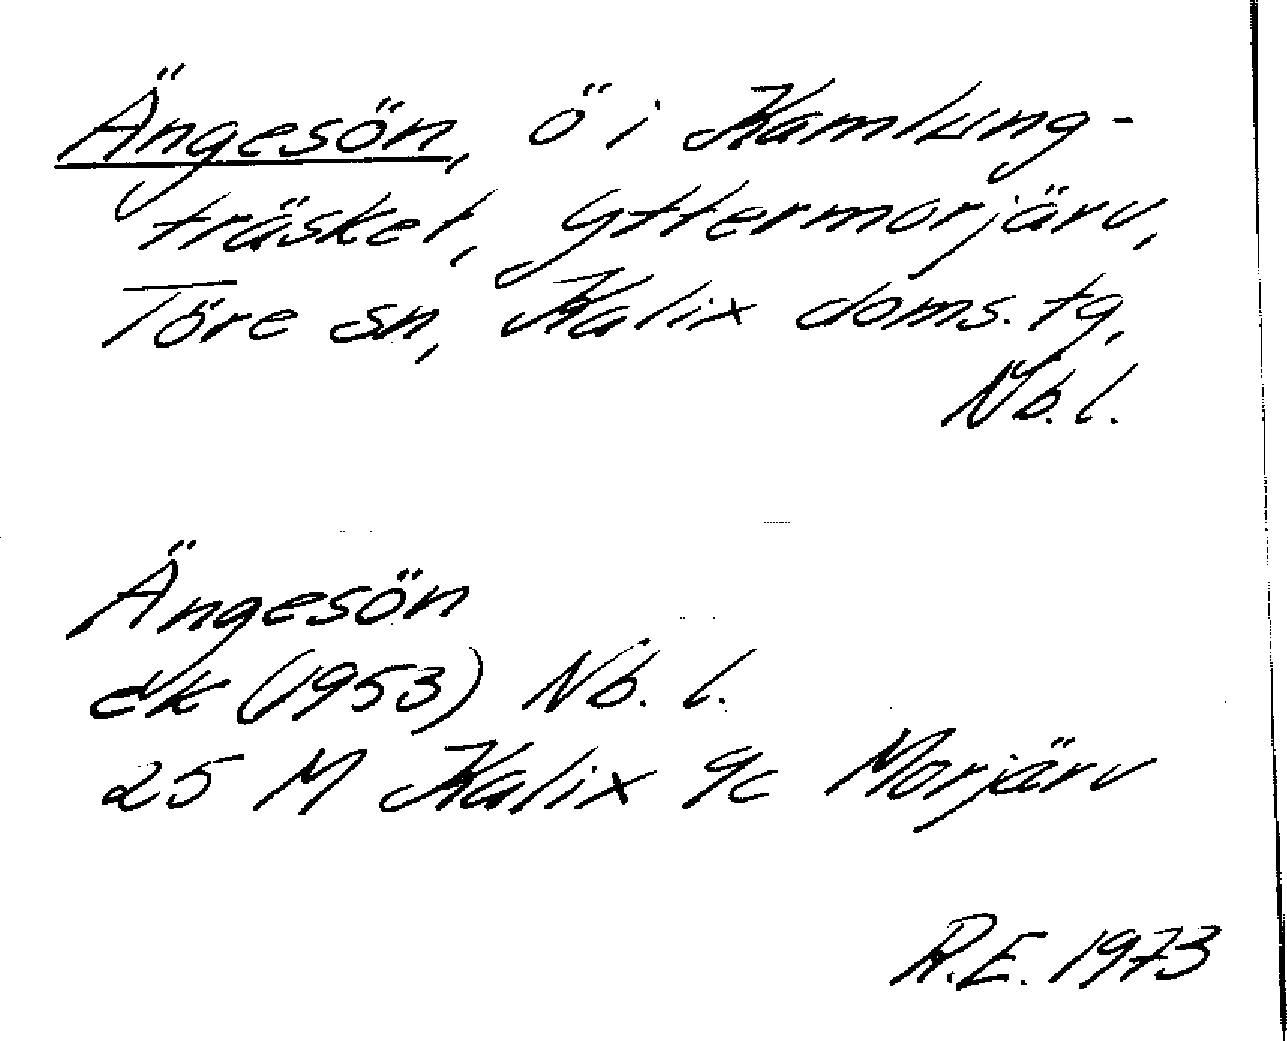 Ängesön, ö i Kamlung-
träsket, Yttermorjärv,
Töre sn, Kalix doms. tg,
Nb. l.
Ängesön
ek (1953) Nb. l.
25 M Kalix 9c Morjärv
R.E. 1973